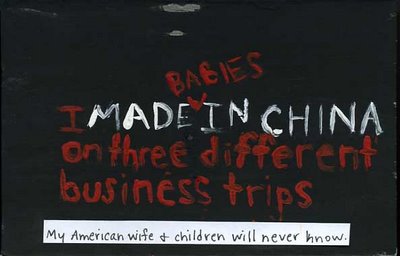 BABIES
I MADE IN CHINA
on three different
business trips
My American wife + children will never know.